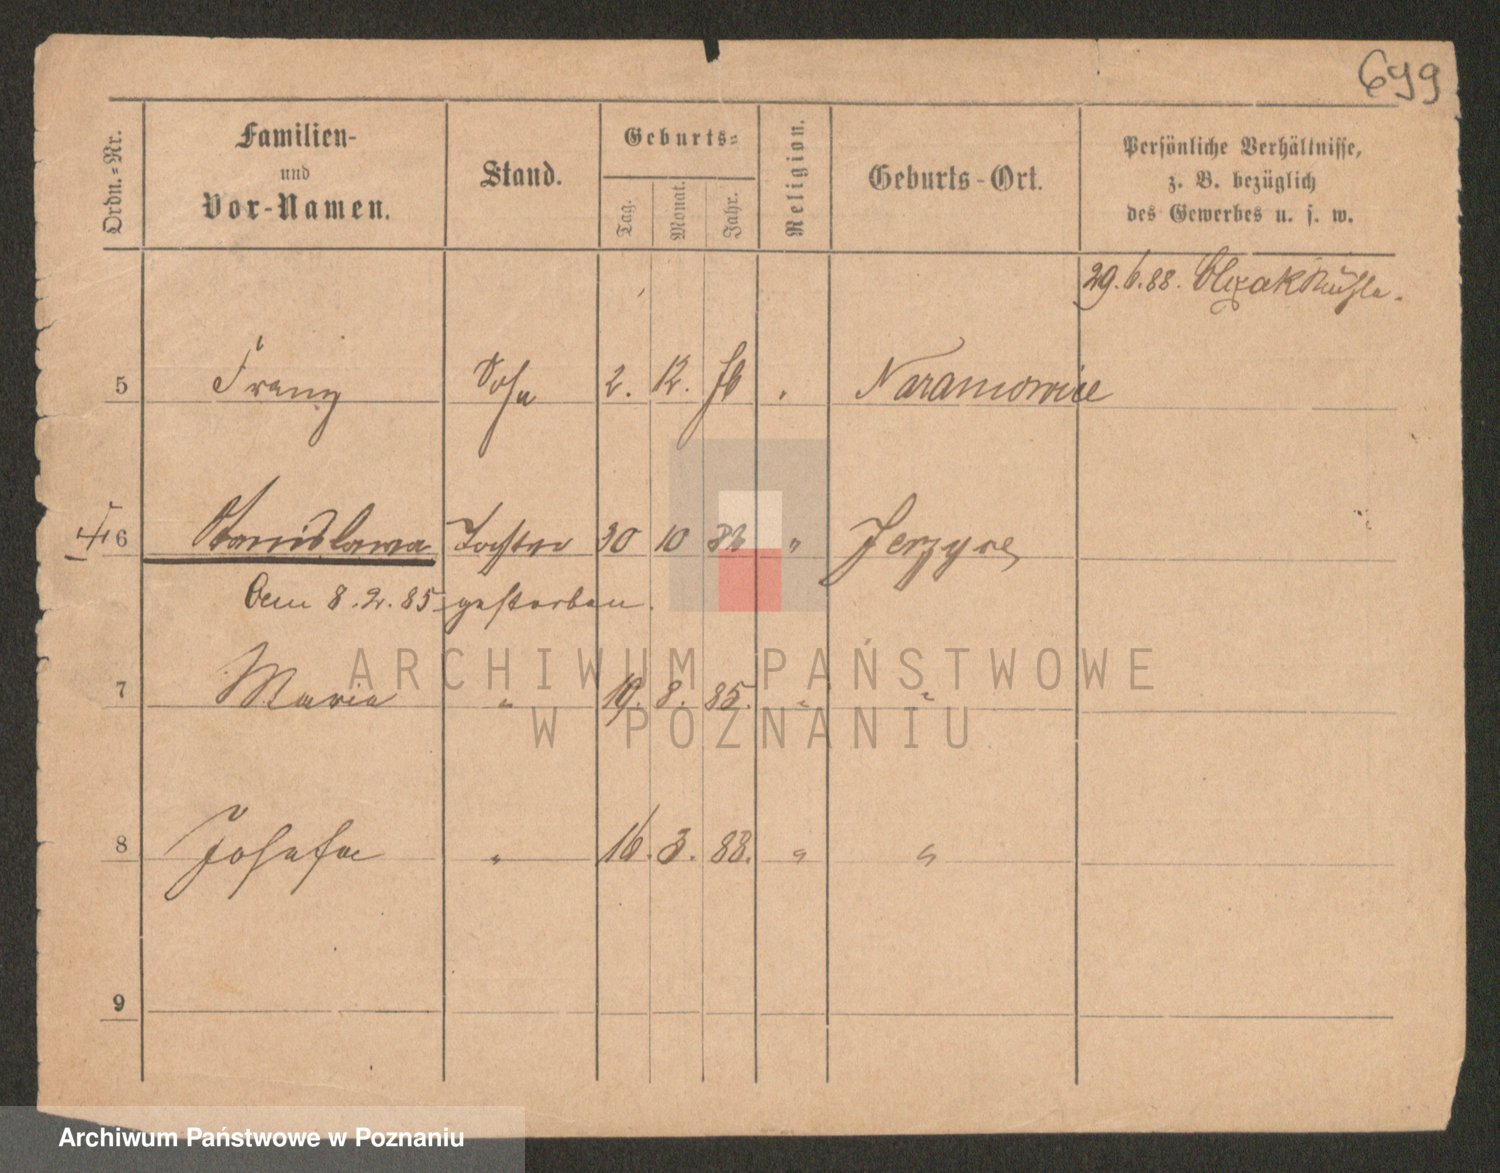 699
Ordn.-Nr.
Familien-
und
Vor-Namen.
Stand.
Geburts-
Tag. Monat. Jahr.
Religion.
Geburts-Ort.
Persönliche Verhältnisse,
z. B. bezüglich
des Gewerbes u. s. w.
29.6.88.
5 Franz Sohn 2. 12. Naramowice
6 Stanislawa Tochter 30 10 " Jerzyce
Am 8.2.85 gestorben.
7 Maria " 19. 8. 85. " "
8 Josefa " 16. 3. 88. " "
9
ARCHIWUM PAŃSTWOWE
W POZNANIU
Archiwum Państwowe w Poznaniu